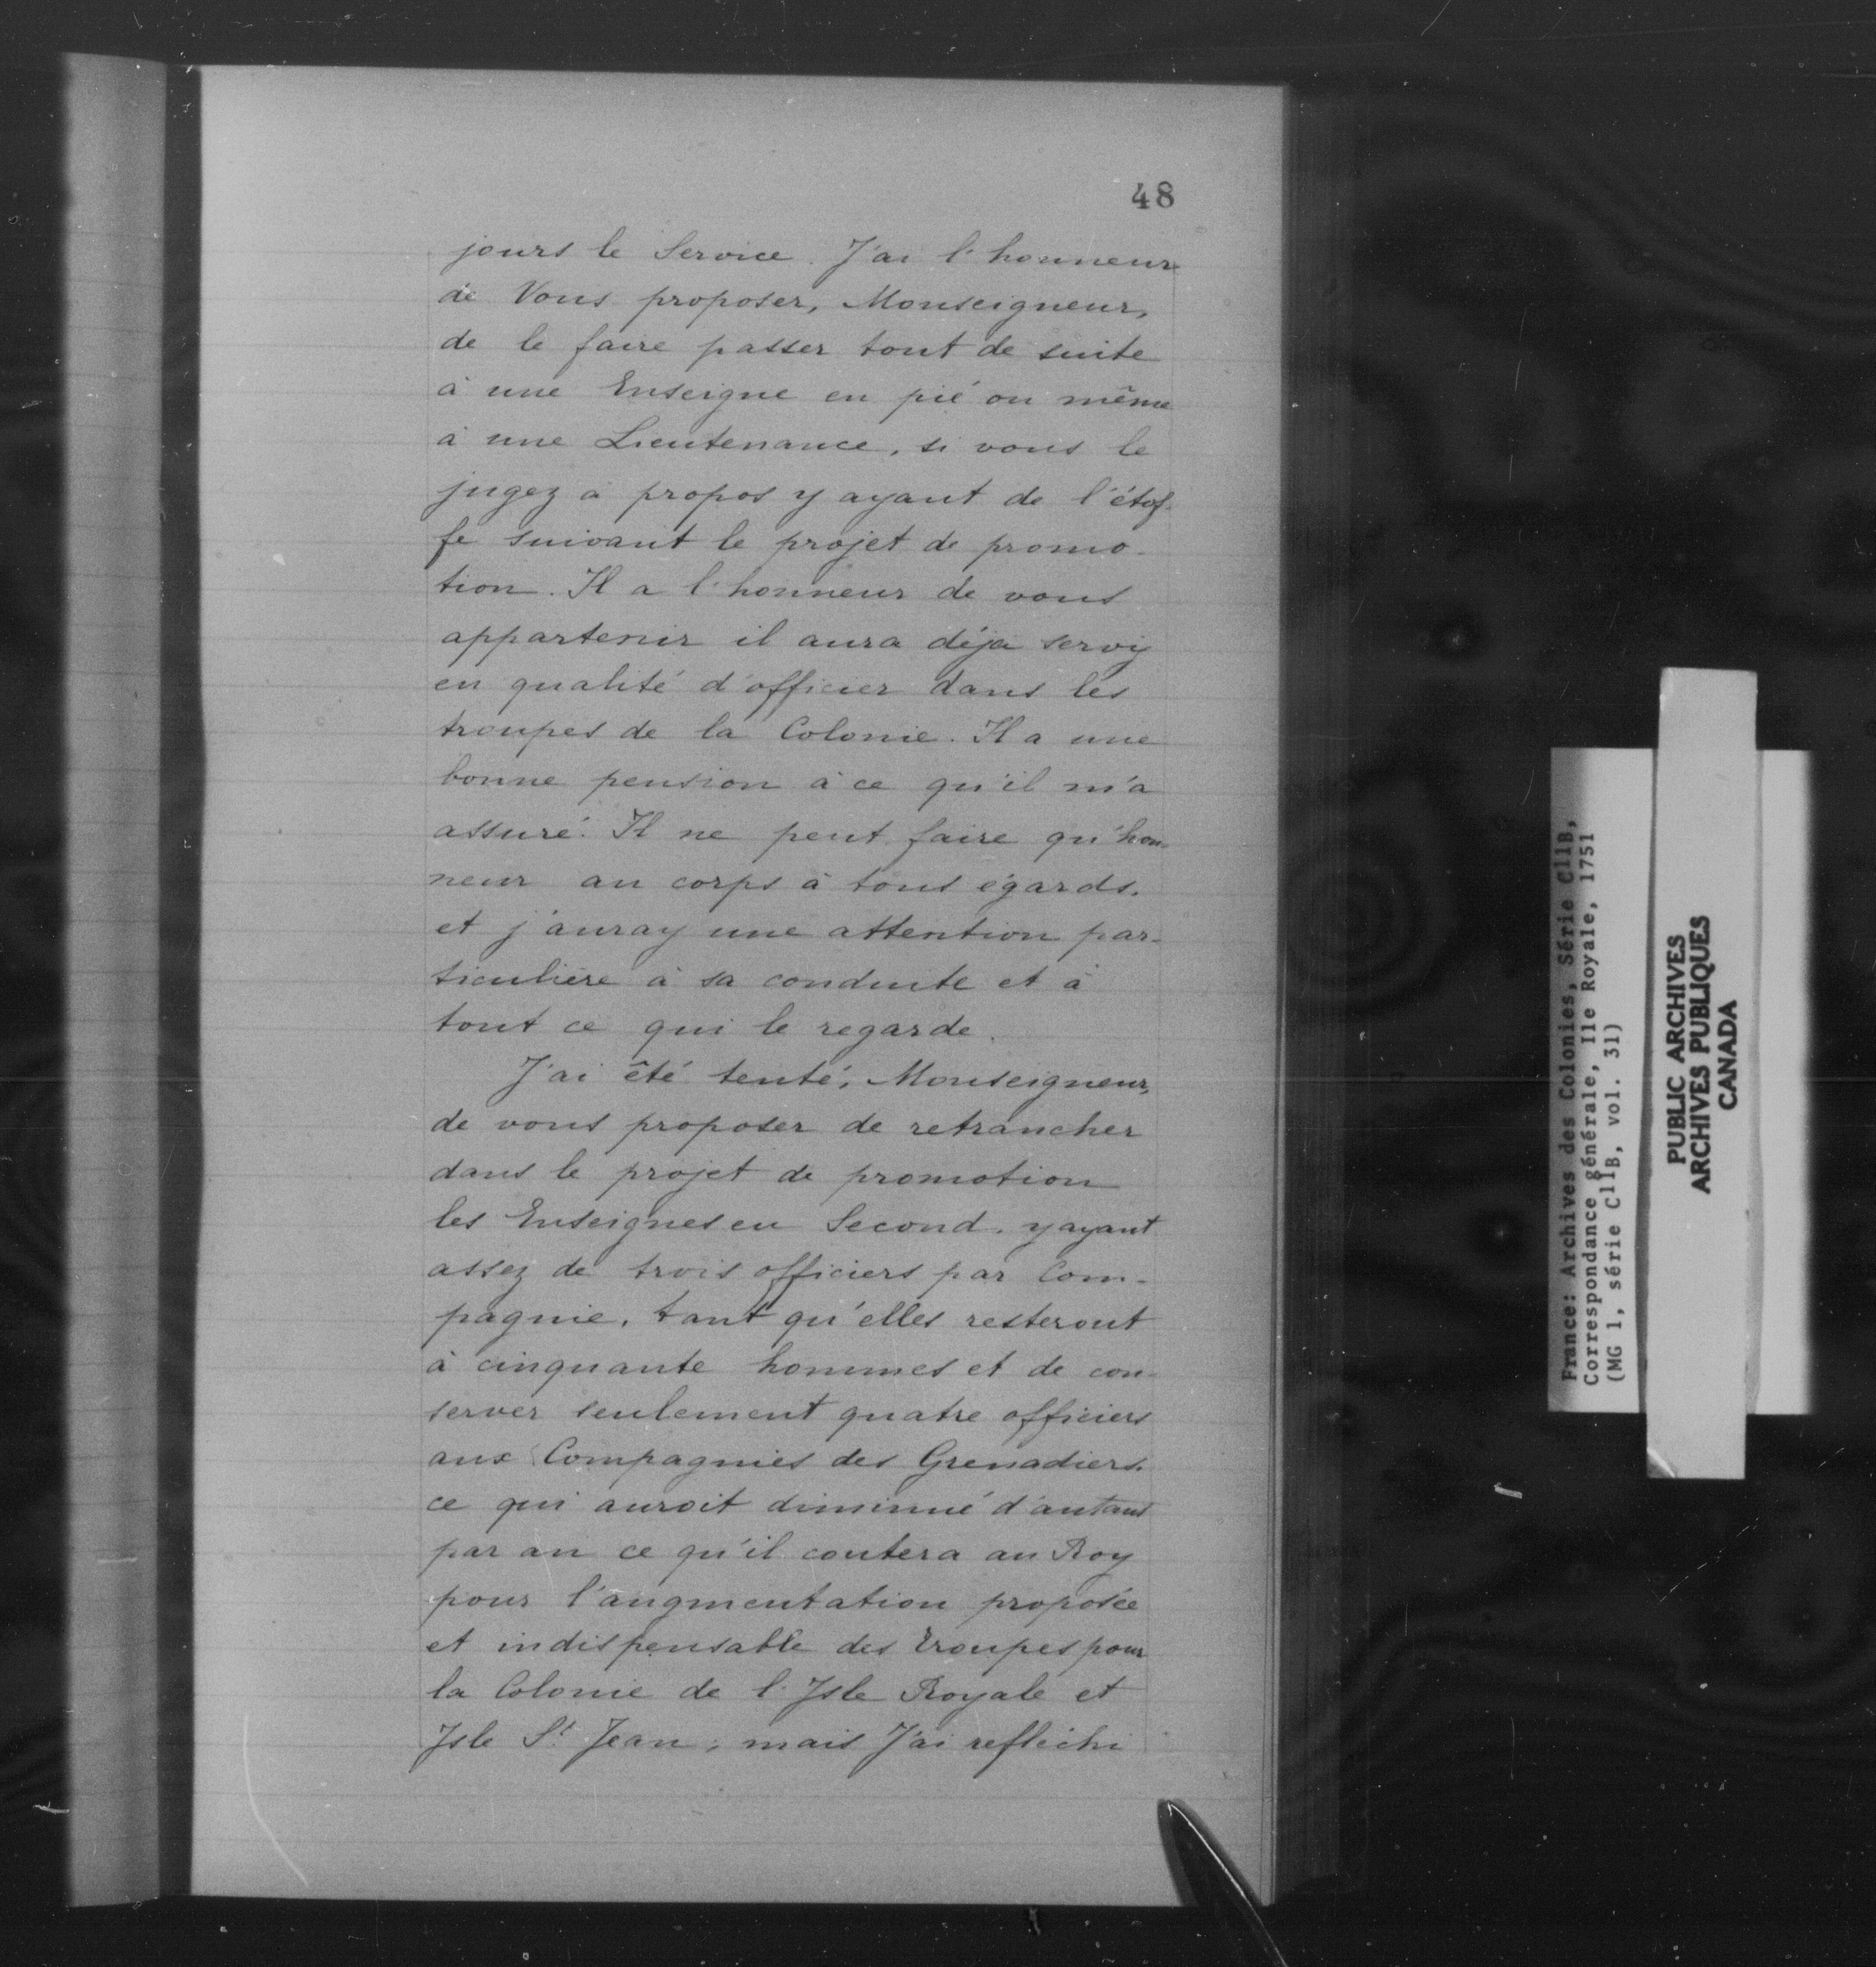 48
jours le Service. J'ai l'honneur
de Vous proposer, Monseigneur,
de le faire passer tout de suite
à une Enseigne en pié ou même
à une Lieutenance, si vous le
jugez à propos y ayant de l'étof-
fe suivant le projet de promo-
tion. Il a l'honneur de vous
appartenir il aura déja servy
en qualité d'officier dans les
troupes de la Colonie. Il a une
bonne pension à ce qu'il m'a
assuré. Il ne peut faire qu'hon-
neur au corps à tous égards.
et j'auray une attention par-
ticulière à sa conduite et à
tout ce qui le regarde.
J'ai été tenté, Monseigneur,
de vous proposer de retrancher
dans le projet de promotion
les Enseignes en Second. y ayant
assez de trois officiers par Com-
pagnie, tant qu'elles resteront
à cinquante hommes et de con-
server seulement quatre officiers
aux Compagnies des Grenadiers.
ce qui auroit diminué d'autant
par an ce qu'il coutera au Roy
pour l'augmentation proposée
et indispensable des troupes pour
la Colonie de l'Isle Royale et
Isle St Jean; mais J'ai refléchi
France: Archives des Colonies, Série C11B,
Correspondance générale, Ile Royale, 1751
(MG 1, série C11B, vol. 31)
PUBLIC ARCHIVES
ARCHIVES PUBLIQUES
CANADA